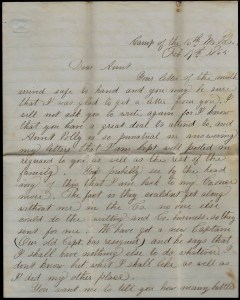 Camp of the 16th
Feb 19th
Dear Aunt
Your letter of the
came safe to hand and you may be sure
that I was glad to get a letter from you. I will
not ask you to write again for I know
that you have a great deal to attend to, and
Aunt Polly is so punctual in answering
my letters that I am kept well posted in
regard to you as well as the rest of the
family. You probably see by the head
ing of this that I am back to my
The fact is they couldn't get along
without me in the Co. as no one else
could do the writing and Co. business, so they
sent for me. We have got a new Captain
(Our old Capt. has resigned) and he says that
I shall have nothing else to do whatever. I
don't know but what I shall like as well as
I did my other place.
You want me to tell you how many battles